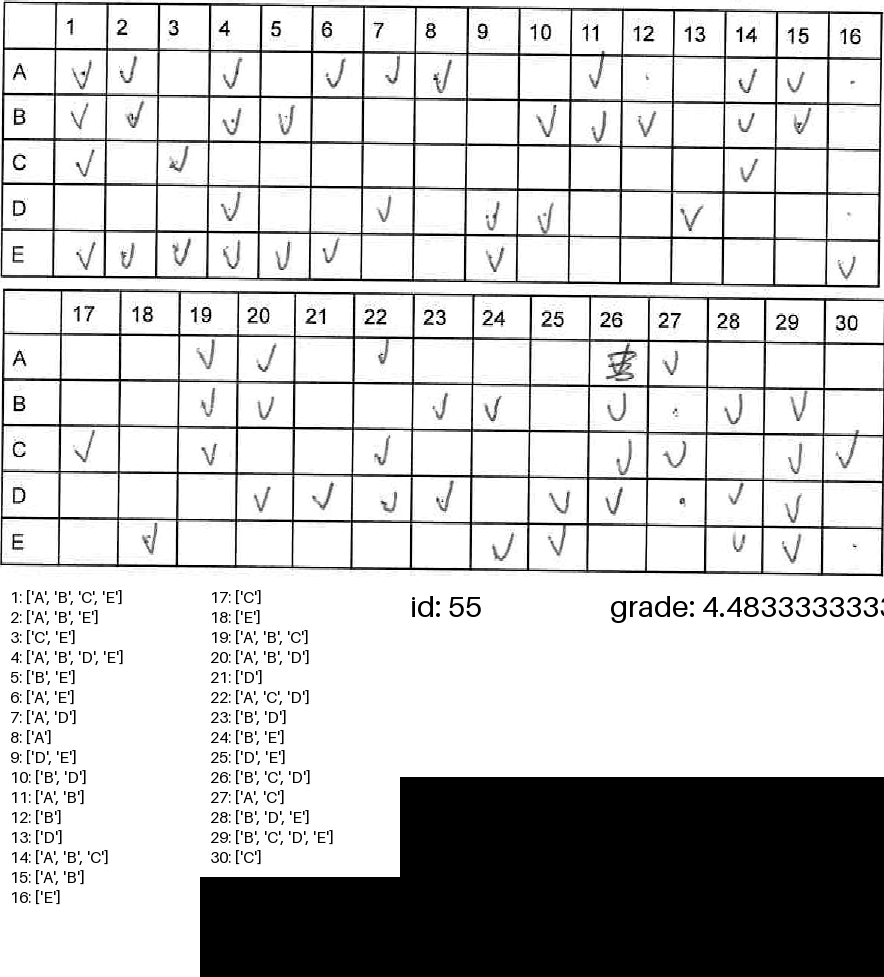 1 2 3 4 5 6 7 8 9 10 11 12 13 14 15 16
A
B
C
D
E
17 18 19 20 21 22 23 24 25 26 27 28 29 30
A
B
C
D
E
1: ['A', 'B', 'C', 'E']
2: ['A', 'B', 'E']
3: ['C', 'E']
4: ['A', 'B', 'D', 'E']
5: ['B', 'E']
6: ['A', 'E']
7: ['A', 'D']
8: ['A']
9: ['D', 'E']
10: ['B', 'D']
11: ['A', 'B']
12: ['B']
13: ['D']
14: ['A', 'B', 'C']
15: ['A', 'B']
16: ['E']
17: ['C']
18: ['E']
19: ['A', 'B', 'C']
20: ['A', 'B', 'D']
21: ['D']
22: ['A', 'C', 'D']
23: ['B', 'D']
24: ['B', 'E']
25: ['D', 'E']
26: ['B', 'C', 'D']
27: ['A', 'C']
28: ['B', 'D', 'E']
29: ['B', 'C', 'D', 'E']
30: ['C']
id: 55
grade: 4.4833333333